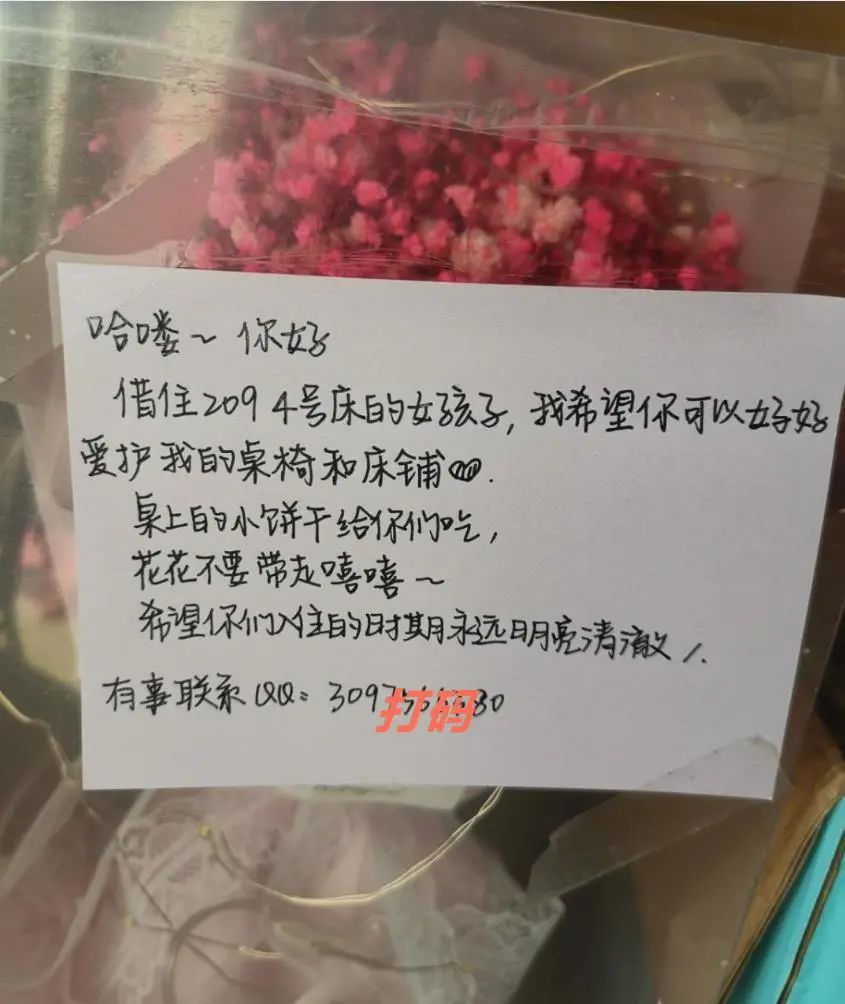 哈喽~ 你好
借住209 4号床的女孩子,我希望你可以好好
爱护我的桌椅和床铺
桌上的小饼干给你们吃,
花花不要带走嘻嘻~
希望你们入住的时期永远明亮清澈
有事联系QQ:
打码